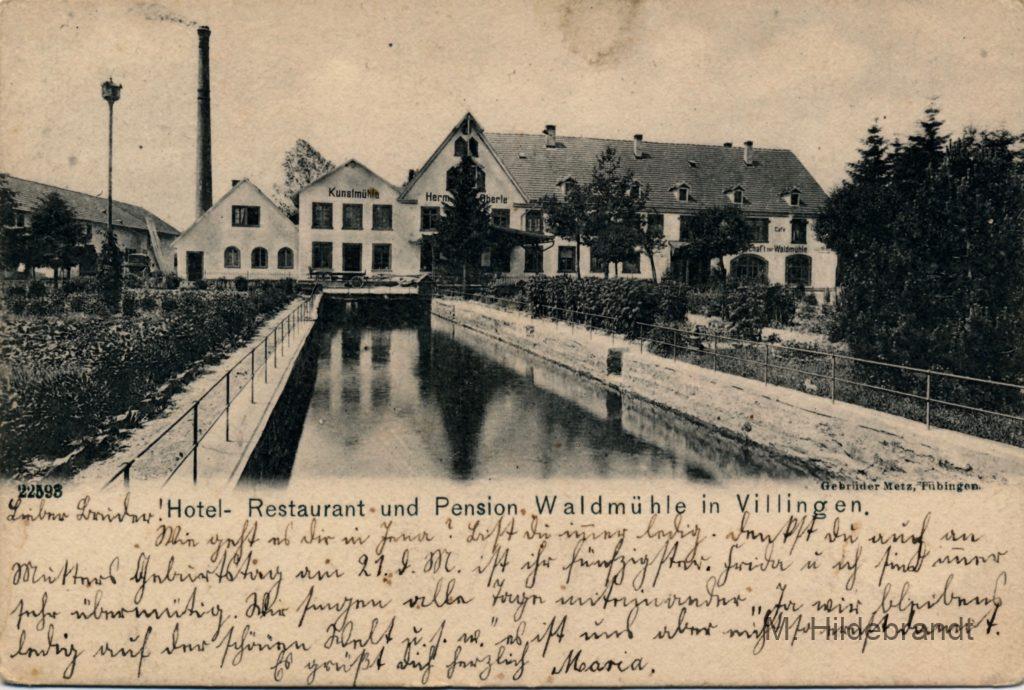 Kunstmühle
Herm. Oberle
Cafe
Wirtschaft zur Waldmühle
22593
Gebrüder Metz, Tübingen.
Hotel- Restaurant und Pension Waldmühle in Villingen.
Lieber Bruder!
Wie geht es dir in Jena? Bist du immer ledig. denkst du auch an
Mutters Geburtstag am 21. d. M. ist ihr fünfzigster. Frida u ich sind immer
sehr übermütig. Wir singen alle Tage miteinander „Ja wir bleibens
ledig auf der schönen Welt u. s. w." es ist uns aber nicht so
Es grüßt dich herzlich Maria.
M. Hildebrandt